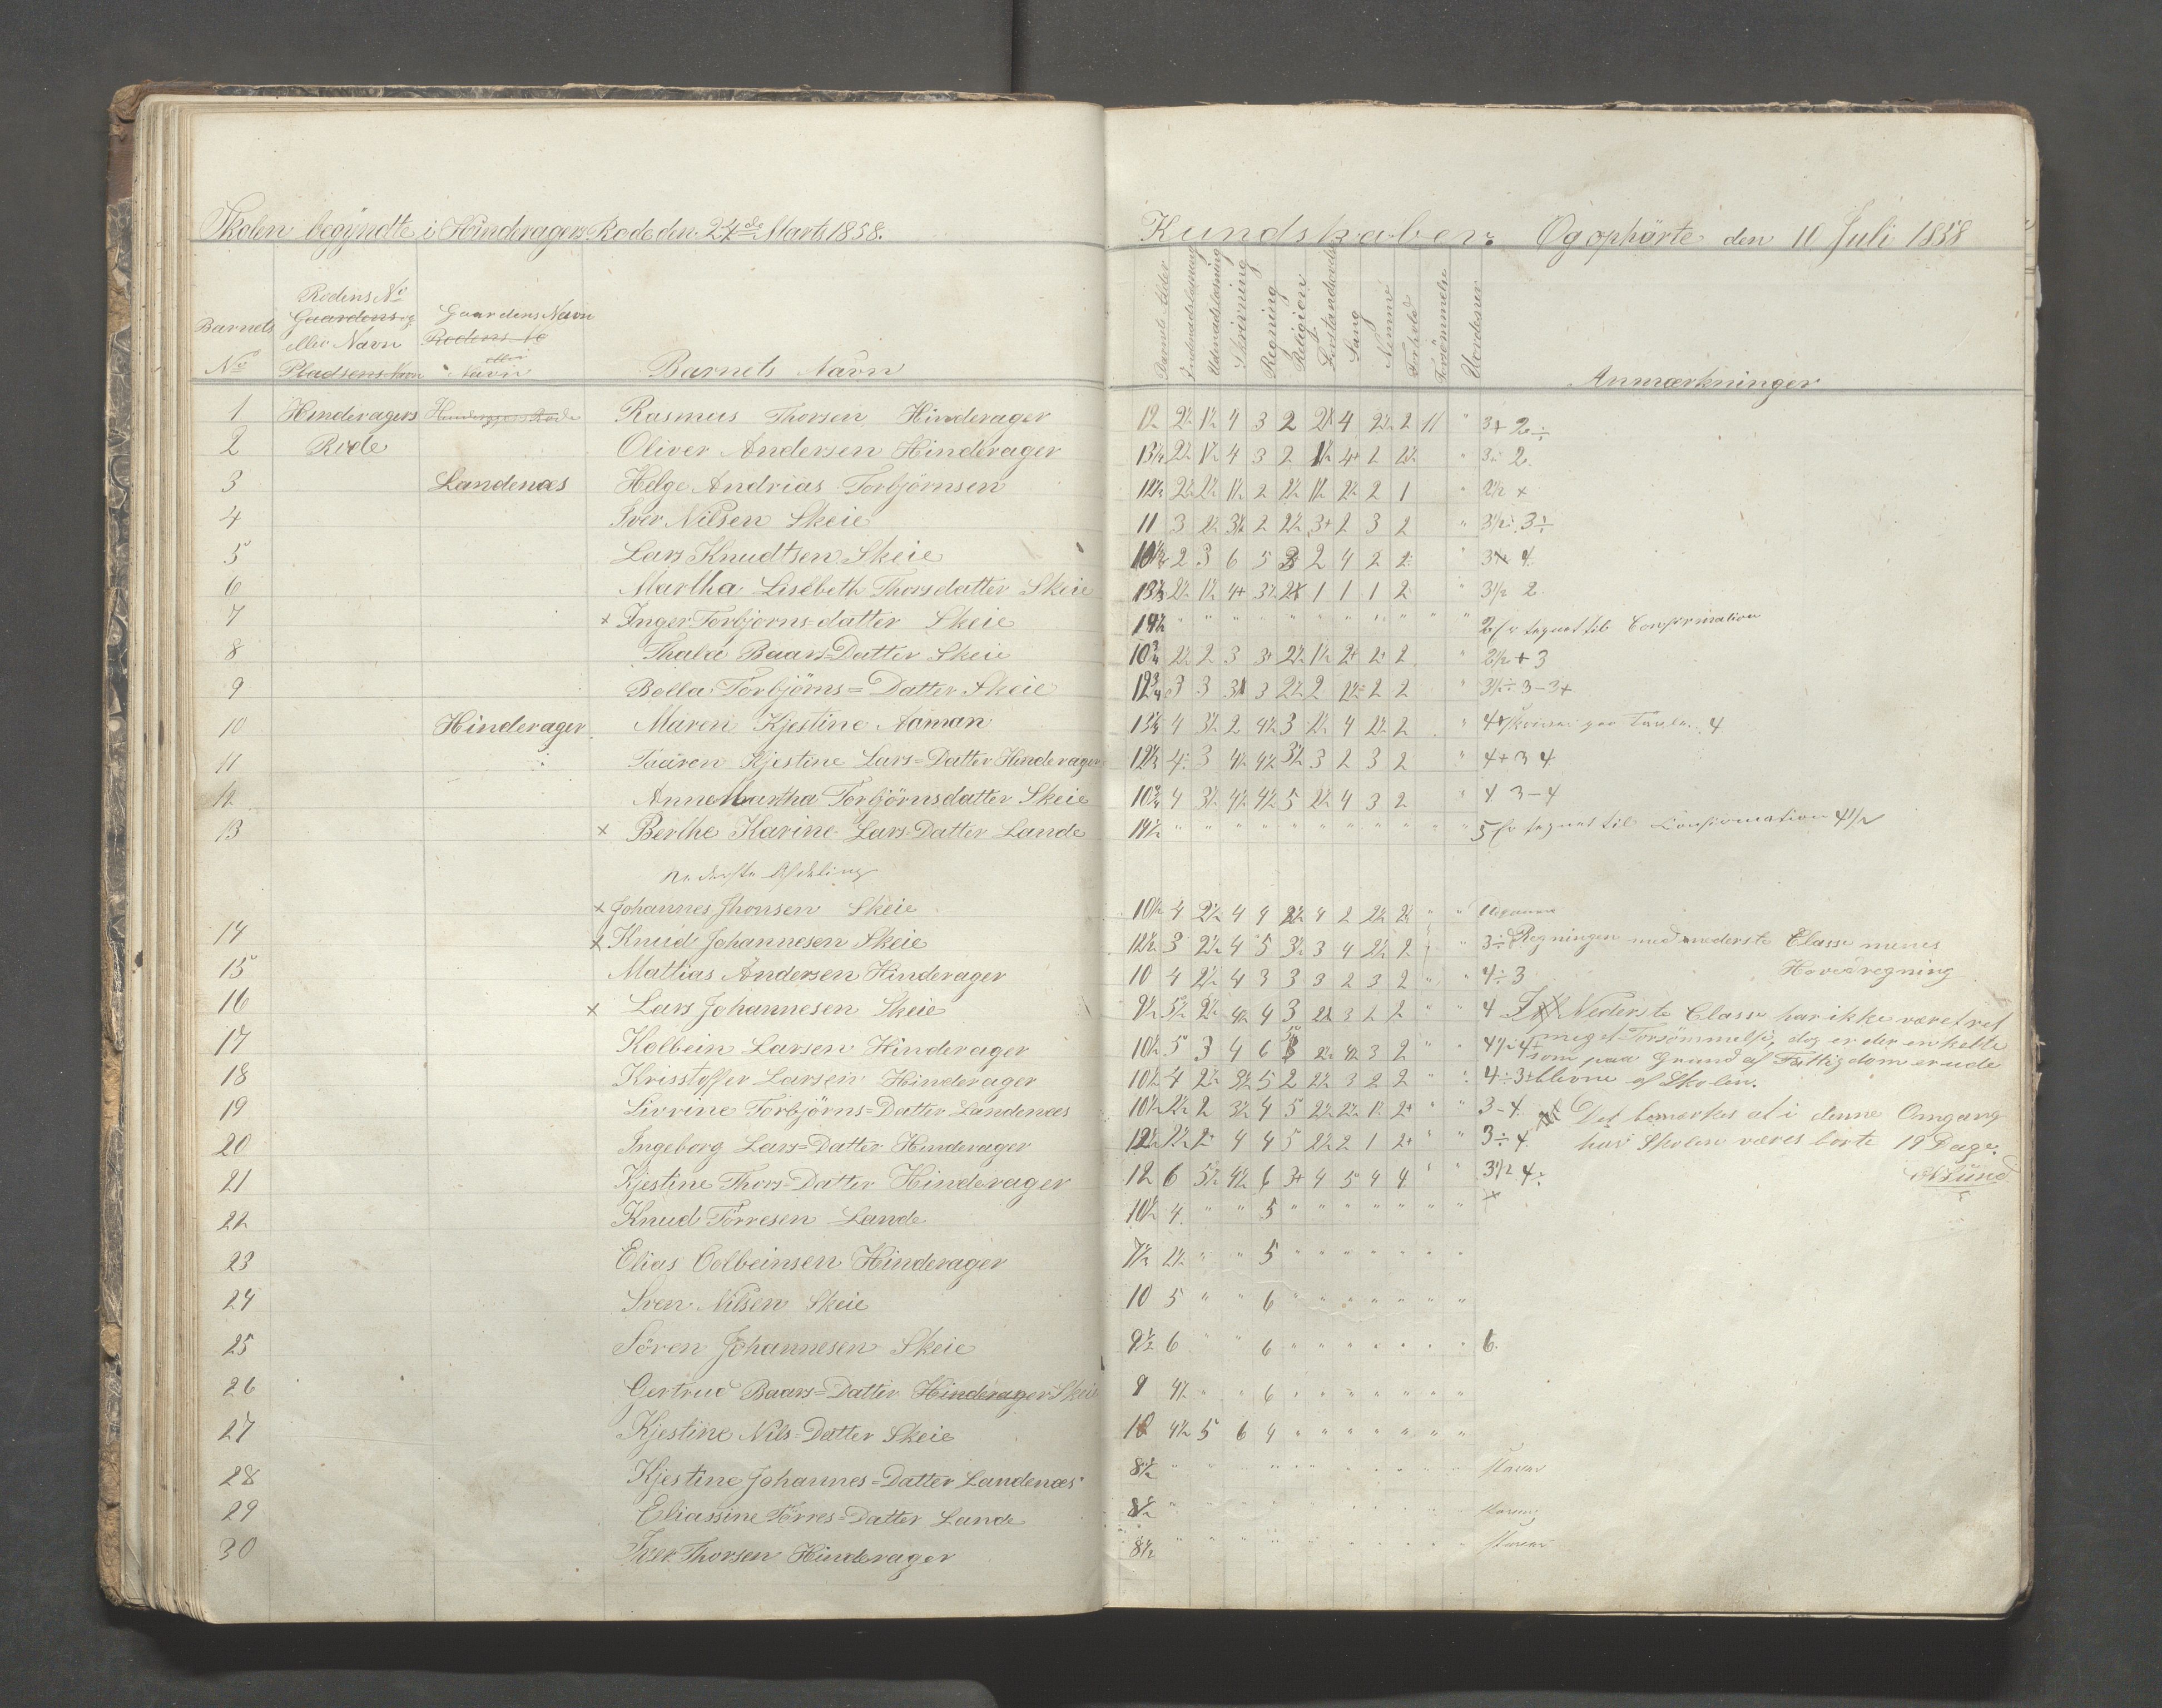 Skolen begyndte i Hinderagers Rode den 24de Marts 1858.
Kundskaber. Og ophörte den 11 Juli 1858
Barnets No
Rodens No Gaardens og eller Navn Pladsens Navn
Gaardens Navn Rodens No eller Navn
Barnets Navn
Barnets Alder
Indenadslæsning
Udenadslæsning
Skrivning
Regning
Religion
Forstandsövelse
Sang
Nemme
Forhold
Forsömmelse
Anmærkninger
1 Hinderagers Hinderagers Rode Rasmus Thorsen Hinderager 12 2½ 1½ 4 3 2 2½ 4 2½ 2 11 " 3+ 2÷
2 Rode Oliver Andersen Hinderager 13½ 2½ 1½ 4 3 2 1½ 4+ 2 2½ " 3÷ 2.
3 Landenæs Helge Andrias Torbjörnsen 12½ 2½ 2½ 1½ 2 2½ 1½ 2½ 2 1 " 2½ +
4 Iver Nilsen Skeie 11 3 2½ 3½ 2 2½ 3+ 2 3 2 " 3½÷ 3÷
5 Lars Knudtsen Skeie 10½ 2 3 6 5 3 2 4 2 2 " 3 4
6 Martha Lisebeth Thorsdatter Skeie 13½ 2½ 1½ 4+ 3½ 2 1 1 1 2 " 3½ 2.
7 × Inger Torbjorns=datter Skeie 14½ " " " " " " " " " " " 2 er tegnet til Confirmation
8 Thala Baars=Datter Skeie 10¾ 2½ 2 3 3+ 2½ 1½ 2+ 2+ 2 " 2½ + 3
9 Bolla Torbjörns=Datter Skeie 12¾ 3 3 3 3 2½ 2 2½ 2 2 " 3½÷ 3-3+
10 Hinderager Maren Kjestine Aaman 13½ 4 3½ 2 4½ 3 2½ 4 2½ 2 " 4 4
11 Kjestine Lars=Datter Hinderager 12½ 4÷ 3 4½ 4½ 3½ 3 2 3 2 " 4+ 3 4
12 Anne Martha Torbjörnsdatter Skeie 10¾ 4 3½ 4½ 4½ 5 2½ 4 3 2 " 4 3-4
13 × Berthe Karine Lars Datter Lande 14½ " " " " " " " " " " " 5 er tegnet til Confirmation 4½
Nederste Afdeling
× Johannes Jhonsen Skeie 10½ 4 2½ 4 4 2½ 4 2 2½ 2½ " "
14 × Knud Johannesen Skeie 12½ 3 2½ 4 5 3½ 3 4 2½ 2 " 3÷ Regningen med nederste Classe menes
15 Mattias Andersen Hinderager 10 4 2½ 4 3 3 3 2 3 2 " " 4÷3 Hovedregning
16 × Lars Johannesen Skeie 9½ 5½ 2½ 4½ 4 3 2½ 3 2 2 " " 4 I Nederste Classe har ikke været ret
17 Kolbein Larsen Hinderager 10½ 5 3 4 6 2½ 4½ 3 2 " " 4½÷4 meget Forsömmelse, dog er der enkelte
som paa Grund af Fattigdom er ude
18 Krisstoffer Larsen Hinderager 10½ 4 2½ 3½ 5 2 2½ 3 2 2 " " 4÷3+ blevne af Skolen.
19 Sivrine Torbjörns=Datter Landenæs 10½ 2½ 2 3½ 4 5 2½ 2½ 1½ 2+ " " 3-4 Det bemærkes at i denne Omgang
20 Ingeborg Lars=Datter Hinderager 12½ 2½ 2+ 4 4 5 2½ 2 1 2+ " " 3÷4 har Skolen været borte 19 Dage.
21 Kjestine Thors=Datter Hinderager 12 6 5½ 4½ 6 3+ 4 5 4 4 " " 3½ 4÷ Lund
22 Knud Törresen Lande 10½ 4 " " 5 " " " " " " " ×
23 Elias Colbeinsen Hinderager 7½ 2½ " " 5 " " " " " " "
24 Sven Nilsen Skeie 10 5 " " 6 " " " " " " "
25 Sören Johannesen Skeie 9½ 6 " " 6 " " " " " " " 6.
26 Gertrud Baars=Datter Hinderager Skeie 9 4½ " " 6 " " " " " " "
27 Kjestine Nils=Datter Skeie 10 4½ 5 6 4 " " " " " " "
28 Kjestine Johannes=Datter Landenæs 8½ " " " " " " " " " " " staver
29 Eliassine Törres=Datter Lande 8½ " " " " " " " " " " "
30 Iver Thorsen Hinderager 8½ " " " " " " " " " " " staver